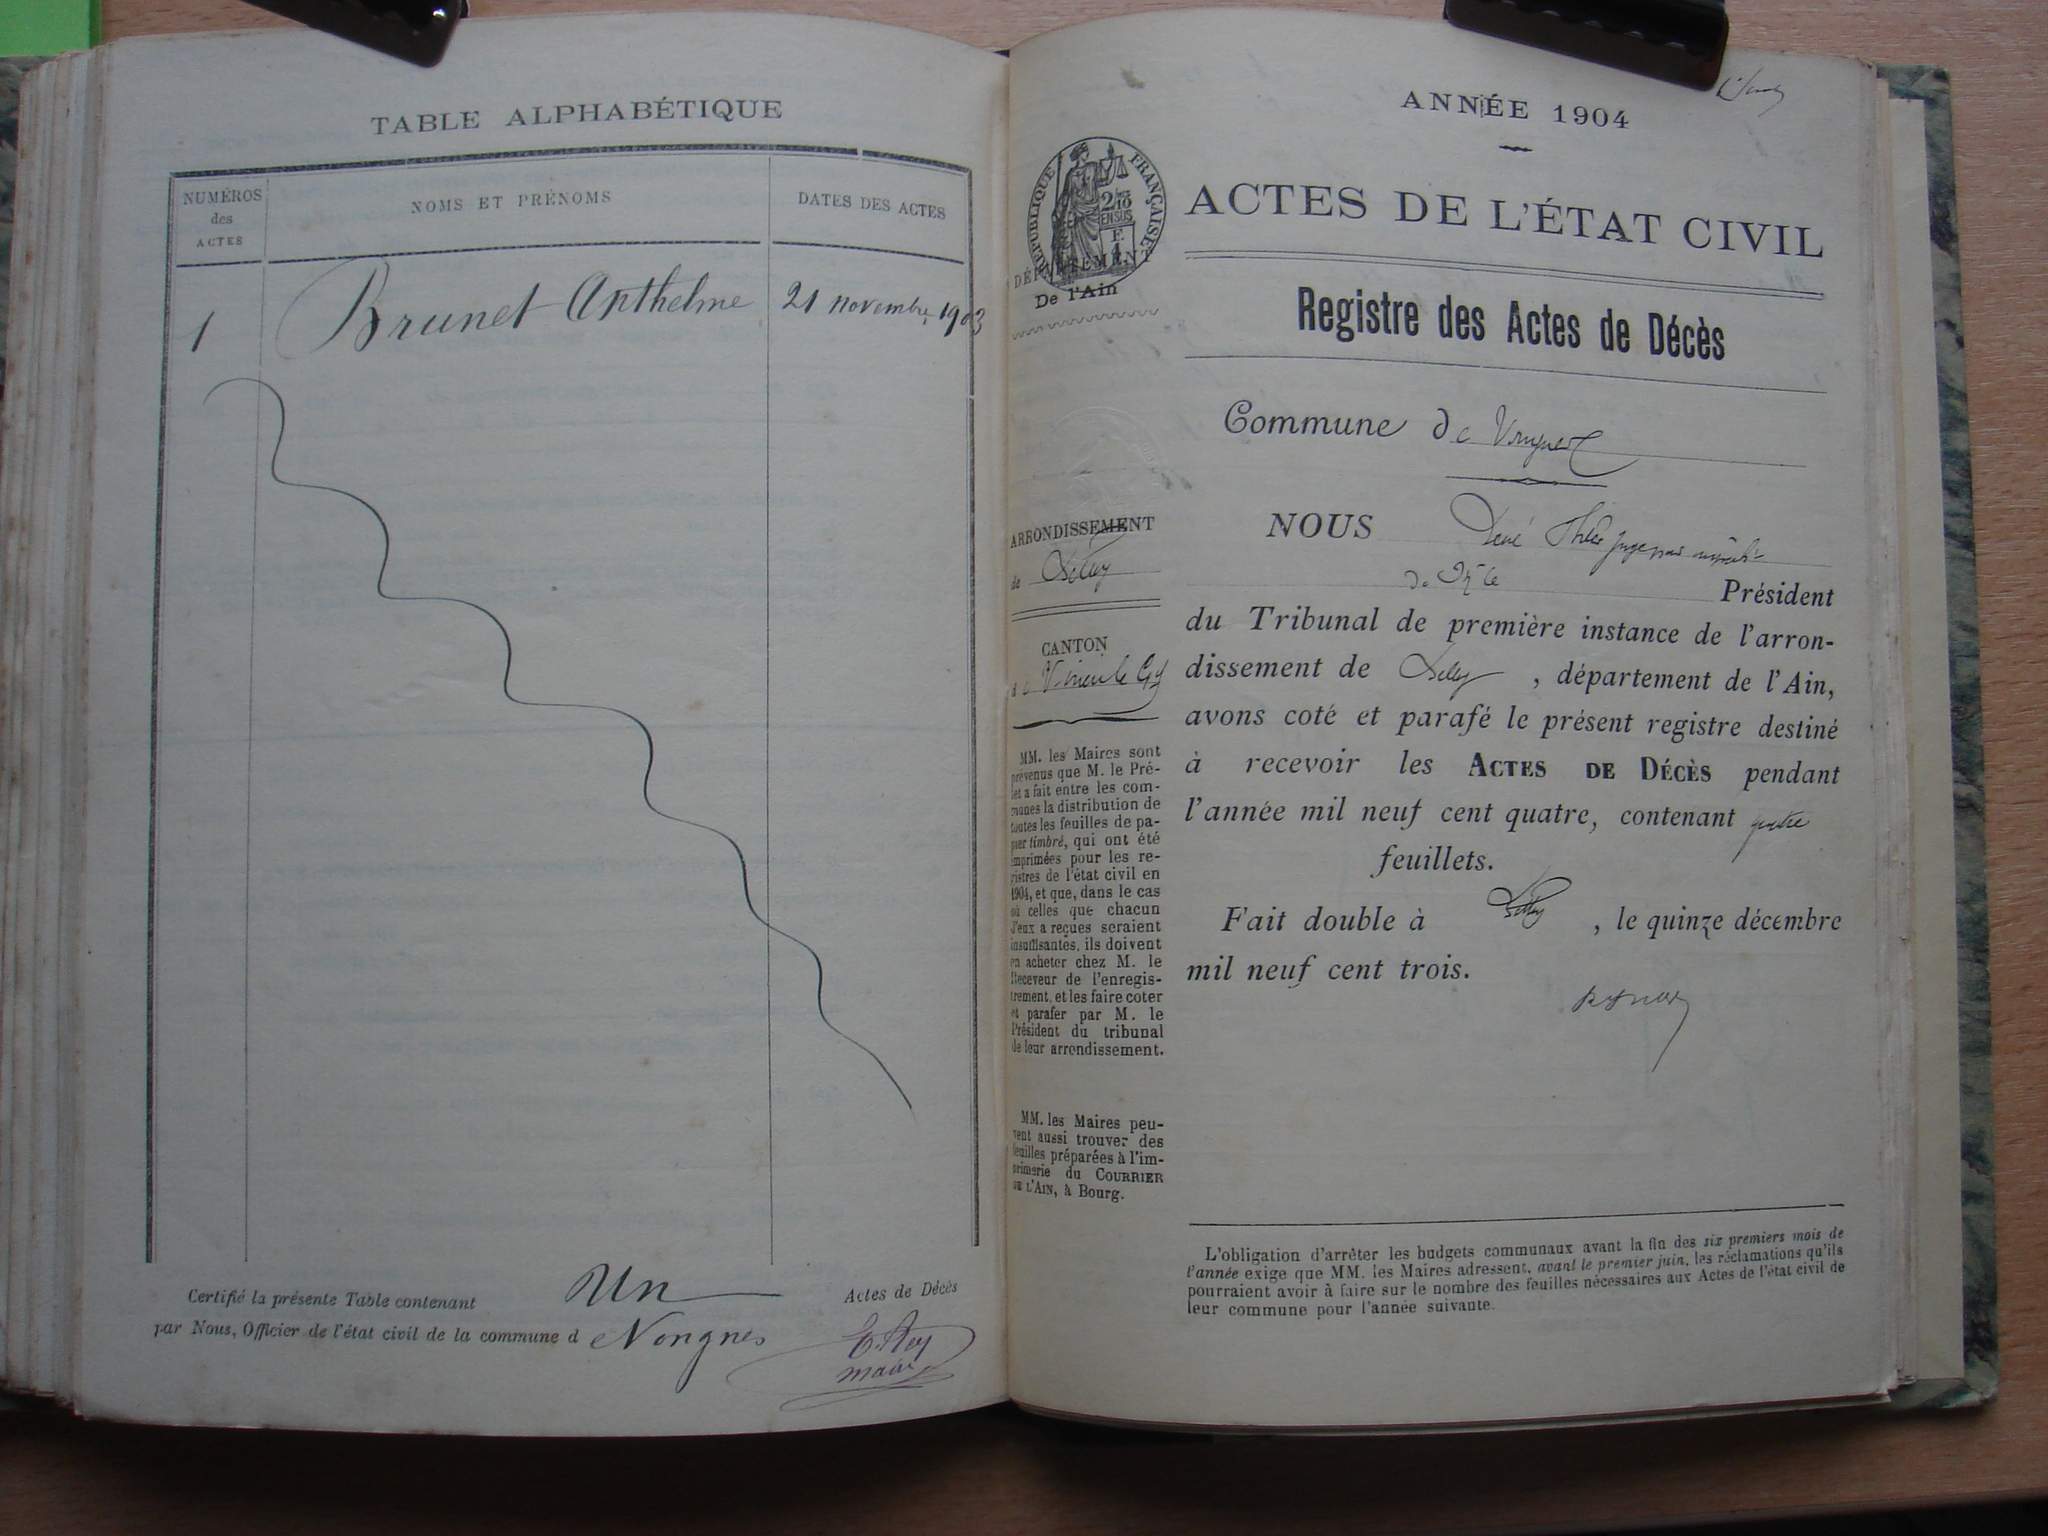 TABLE ALPHABÉTIQUE
NUMÉROS
des
ACTES
NOMS ET PRÉNOMS
DATES DES ACTES
1
Brunet Anthelme
21 novembre 1903
Certifié la présente Table contenant Un Actes de Décès
par Nous, Officier de l'état civil de la commune d e Vongnes
maire
ANNÉE 1904
RÉPUBLIQUE FRANÇAISE
2/10
EN SUS
DÉPARTEMENT
De l'Ain
ARRONDISSEMENT
de Belley
CANTON
de Virieu le Gd
MM. les Maires sont
prévenus que M. le Pré-
fet a fait entre les com-
munes la distribution de
toutes les feuilles de pa-
pier timbré, qui ont été
imprimées pour les re-
gistres de l'état civil en
1904, et que, dans le cas
où celles que chacun
d'eux a reçues seraient
insuffisantes, ils doivent
en acheter chez M. le
Receveur de l'enregis-
trement, et les faire coter
et parafer par M. le
Président du tribunal
de leur arrondissement.
MM. les Maires peu-
vent aussi trouver des
feuilles préparées à l'im-
primerie du COURRIER
DE L'AIN, à Bourg.
ACTES DE L'ÉTAT CIVIL
Registre des Actes de Décès
Commune de Vongnes
NOUS René
Président
du Tribunal de première instance de l'arron-
dissement de Belley, département de l'Ain,
avons coté et parafé le présent registre destiné
à recevoir les ACTES DE DÉCÈS pendant
l'année mil neuf cent quatre, contenant quatre
feuillets.
Fait double à Belley, le quinze décembre
mil neuf cent trois.
L'obligation d'arrêter les budgets communaux avant la fin des six premiers mois de
l'année exige que MM. les Maires adressent, avant le premier juin, les réclamations qu'ils
pourraient avoir à faire sur le nombre des feuilles nécessaires aux Actes de l'état civil de
leur commune pour l'année suivante.